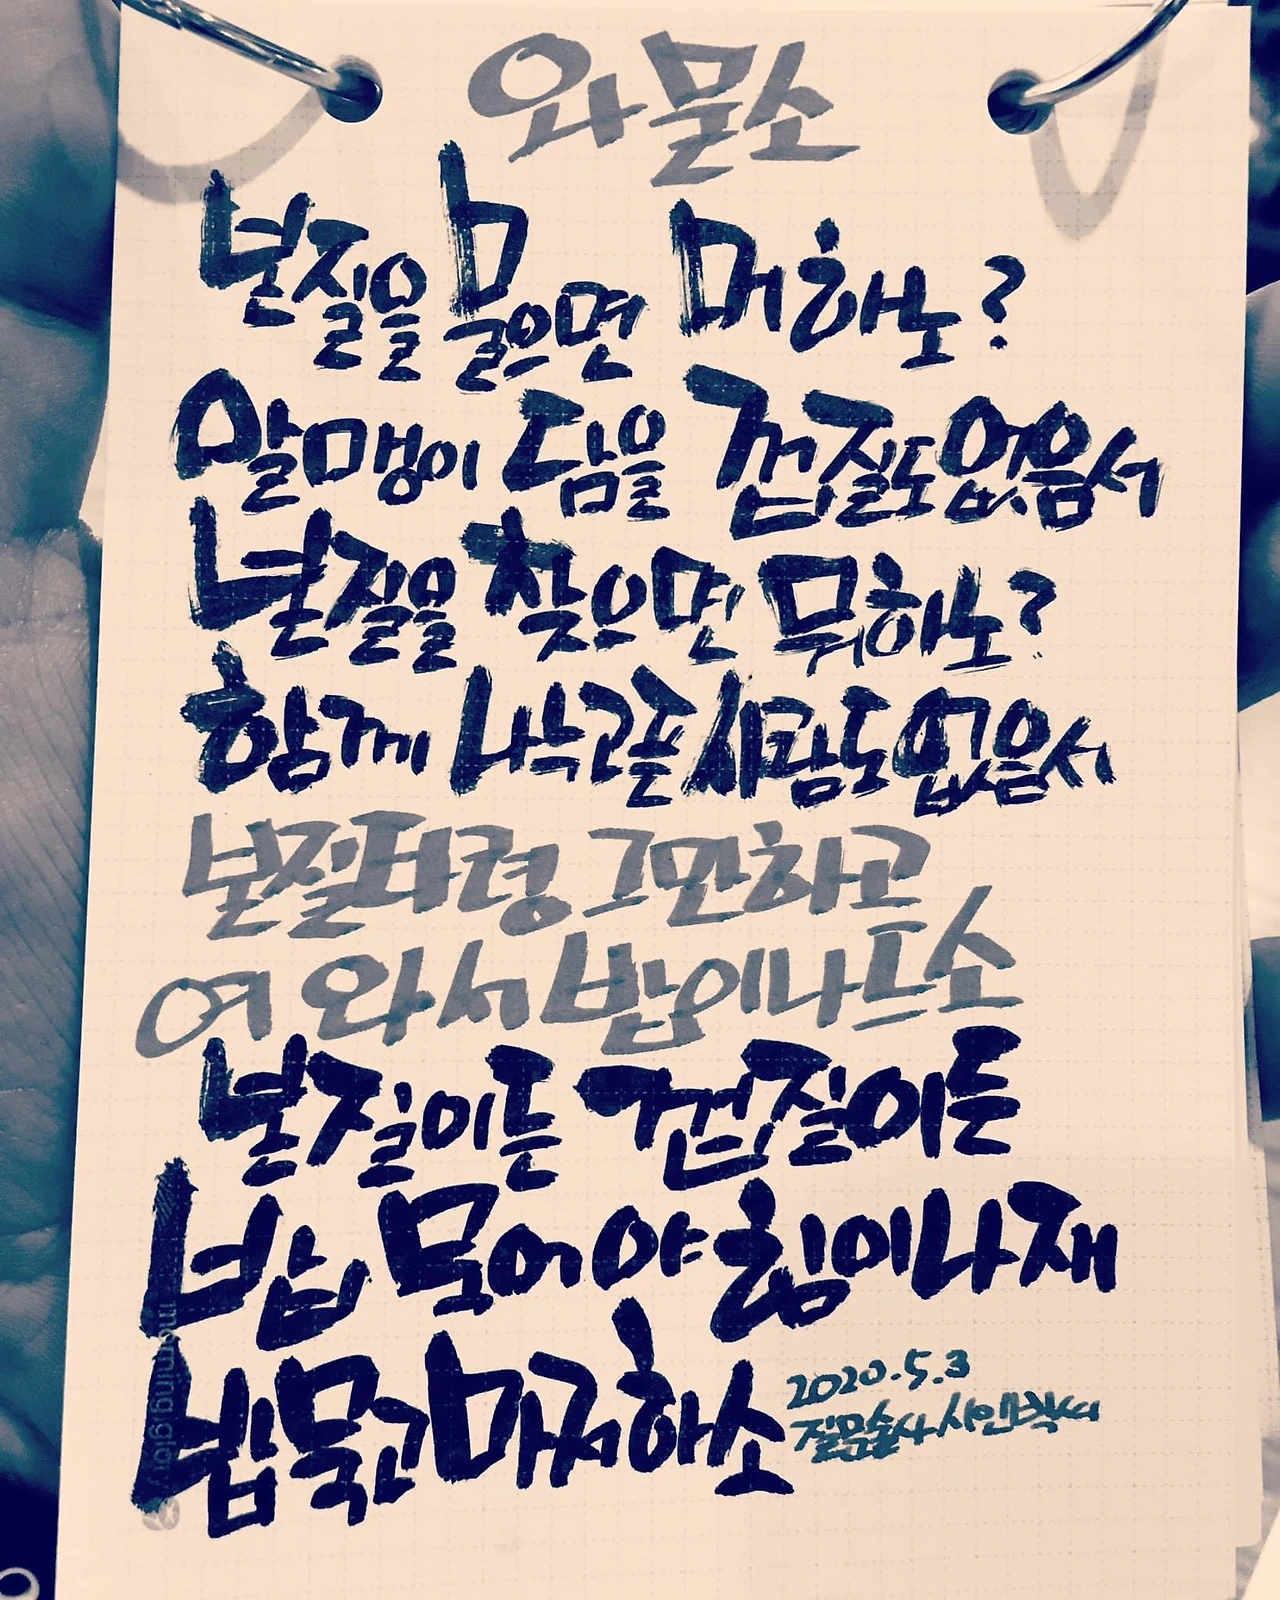 와 물소
본질을 물으면 머하노?
알맹이 담을 껍질도 없음서
본질을 찾으면 뭐하노?
함께 사람도 없음서
본질타령 그만하고
여 와서 밥이나 드소
본질이든 껍질이든
밥 묵어야 힘이나재
밥 묵고 마저하소
2020.5.3
질문술사 시인박씨
morning glory